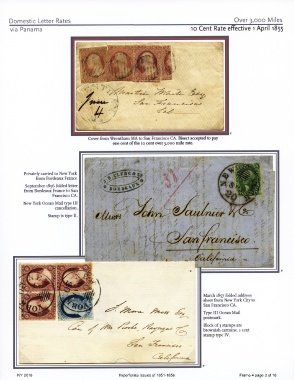 Domestic Letter Rates
via Panama
Over 3,000 Miles
10 Cent Rate effective 1 April 1855
June
4
San Francisco
Cal
Cover from Wrentham MA to San Francisco CA. Bisect accepted to pay
one cent of the 10 cent over 3,000 mile rate.
Privately carried to New York
from Bordeaux France
September 1856 folded letter
from Bordeaux France to San
Francisco CA.
New York Ocean Mail type III
cancellation.
Stamp is type II.
BORDEAUX
NEW
Messrs John Saulnier & Co
San Francisco
California
March 1857 folded address
sheet from New York City to
San Francisco CA
Type III Ocean Mail
postmark.
Block of 4 stamps are
brownish carmine. 1 cent
stamp type IV.
San Francisco
California
Imperforate Issues of 1851-1856